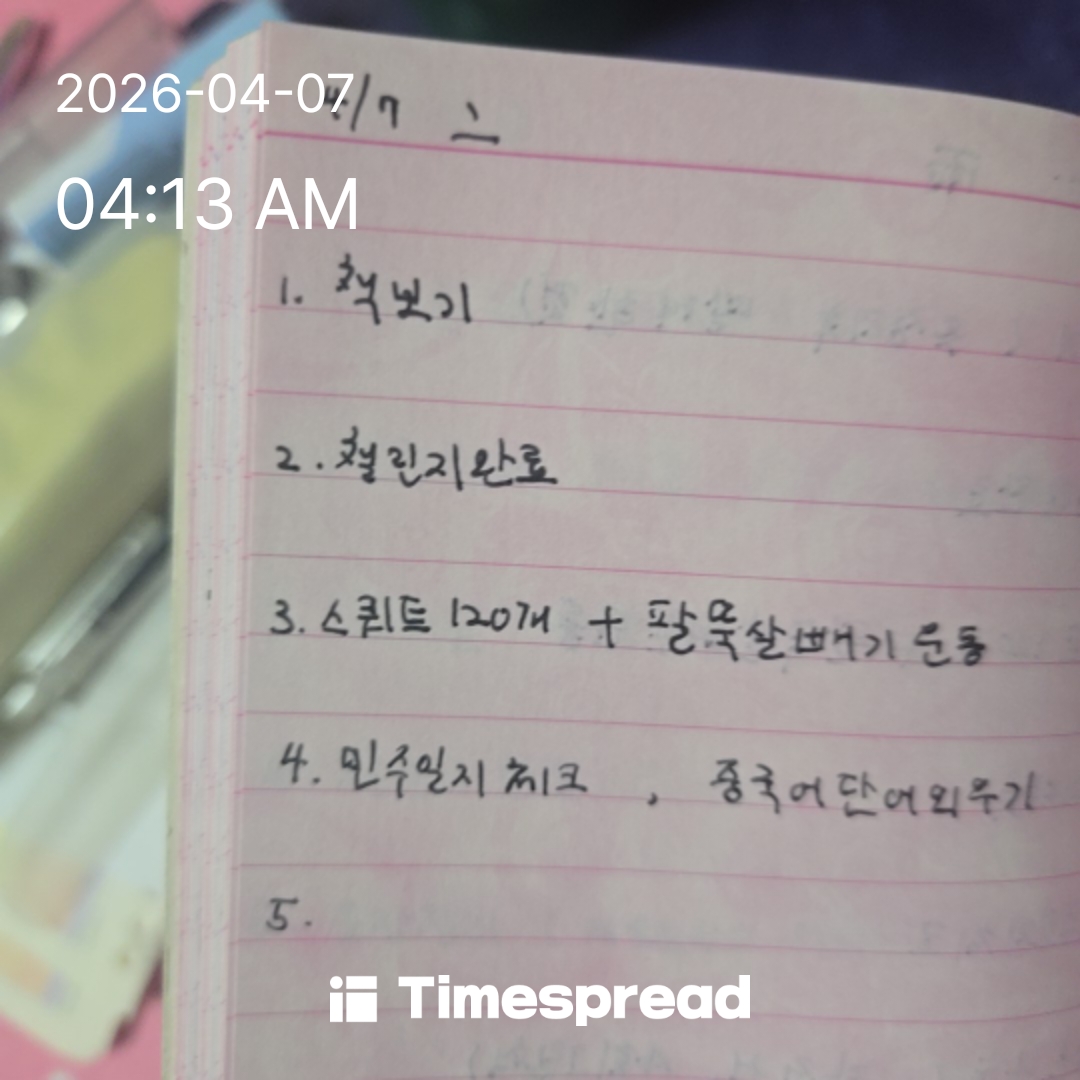 2026-04-07
4/7
04:13 AM
1. 책보기
2. 챌린지완료
3. 스쿼트 120개 + 팔뚝살빼기 운동
4. 민주일지 체크 , 중국어단어외우기
5.
Timespread